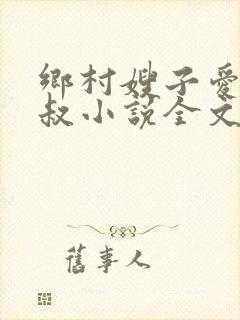 鄉村嫂子愛
叔小說全文
舊事人